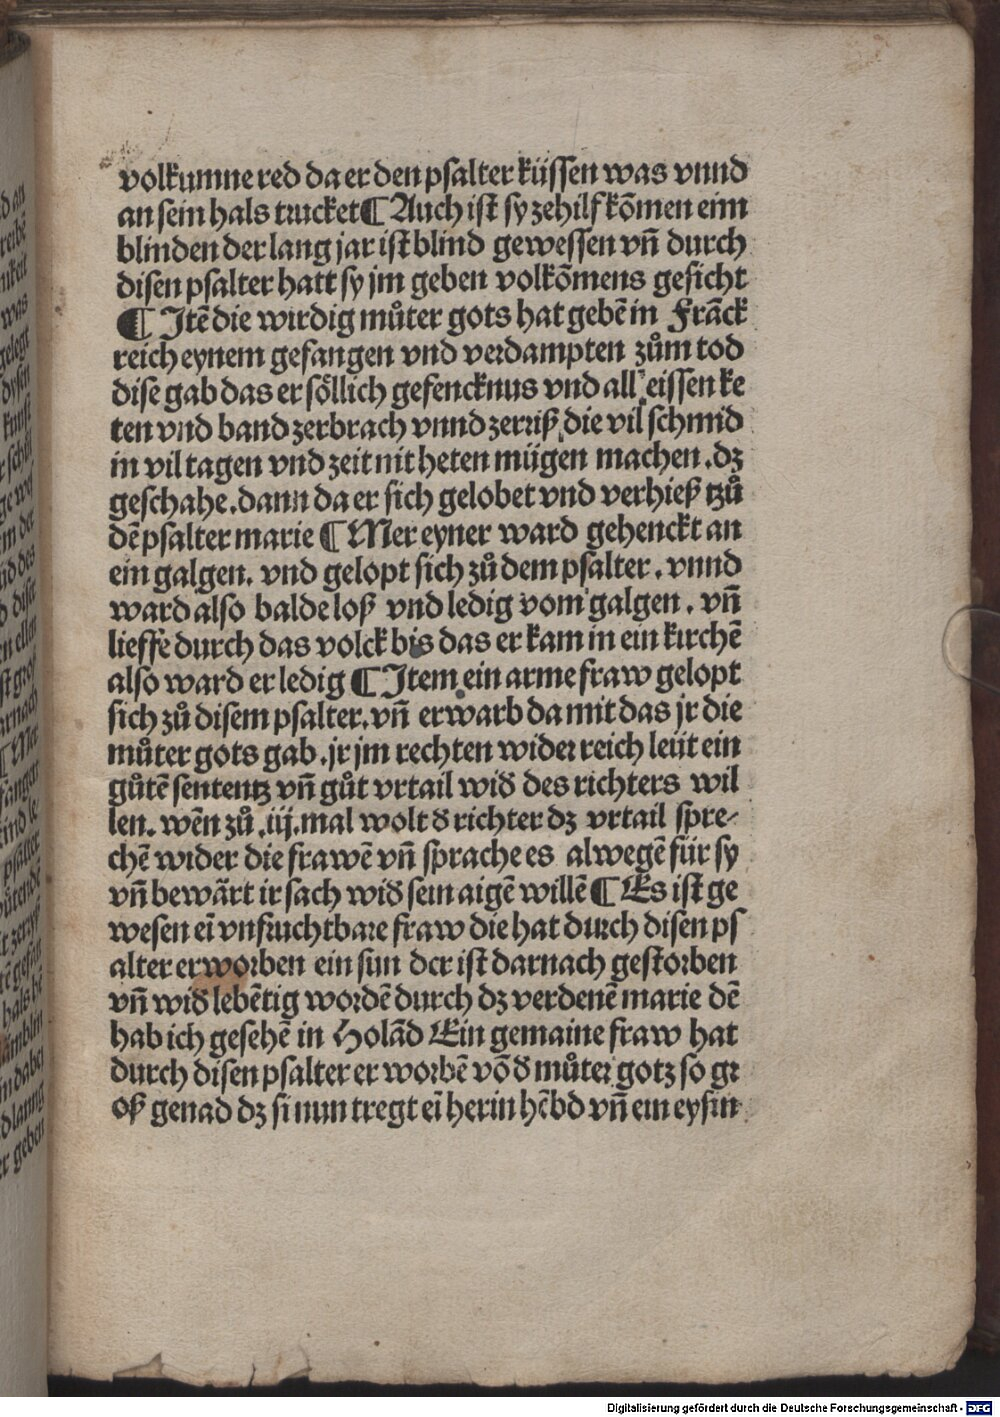 volkumne red da er den psalter küssen was vnnd
an sein hals trucket ¶ Auch ist sy zehilf kōmen eim
blinden der lang jar ist blind gewessen vn̄ durch
disen psalter hatt sy jm geben volkōmens gesicht
¶ Itē die wirdig můter gots hat gebē in Frāck
reich eynem gefangen vnd verdampten zům tod
dise gab das er söllich gefencknus vnd all eissen ke
ten vnd band zerbrach vnnd zerriß die vil schmid
in vil tagen vnd zeit nit heten mügen machen. dz
geschahe. dann da er sich gelobet vnd verhieß tzů
dē psalter marie ¶ Mer eyner ward gehenckt an
ein galgen. vnd gelopt sich zů dem psalter. vnnd
ward also balde loß vnd ledig vom galgen. vn̄
lieffe durch das volck bis das er kam in ein kirchē
also ward er ledig ¶ Item ein arme fraw gelopt
sich zů disem psalter. vn̄ erwarb da mit das jr die
můter gots gab. jr jm rechten wider reich leüt ein
gůtē sententz vn̄ gůt vrtail wid̓ des richters wil
len. wēn zů .iij. mal wolt d̓ richter dz vrtail spre⸗
chē wider die frawē vn̄ sprache es alwegē für sy
vn̄ bewārt ir sach wid̓ sein aigē willē ¶ Es ist ge
wesen eī vnfruchtbare fraw die hat durch disen ps
alter erworben ein sun der ist darnach gestorben
vn̄ wid̓ lebētig wordē durch dz verdenē marie dē
hab ich gesehē in Holād Ein gemaine fraw hat
durch disen psalter er worbē vō d̓ můter gotz so gr
oß genad dz si nun tregt eī herin hēbd vn̄ ein eysin
Digitalisierung gefördert durch die Deutsche Forschungsgemeinschaft - DFG